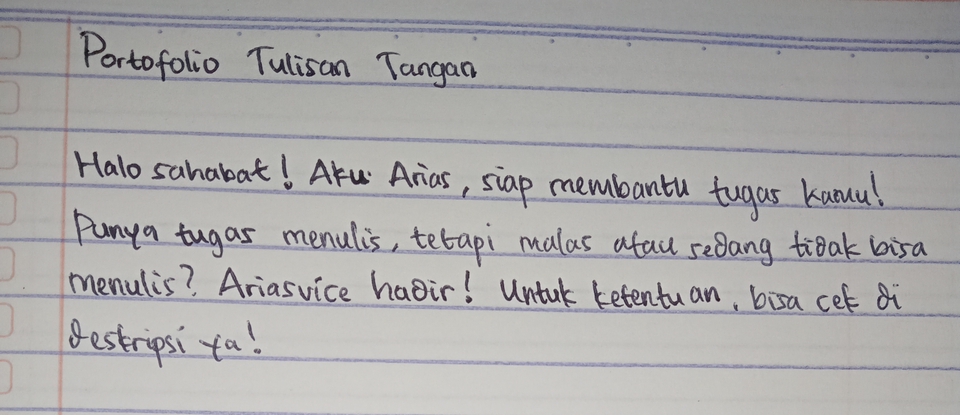 Portofolio Tulisan Tangan
Halo sahabat! Aku Arias, siap membantu tugas kamu!
Punya tugas menulis, tetapi malas atau sedang tidak bisa
menulis? Ariasvice hadir! Untuk ketentuan, bisa cek di
deskripsi ya!